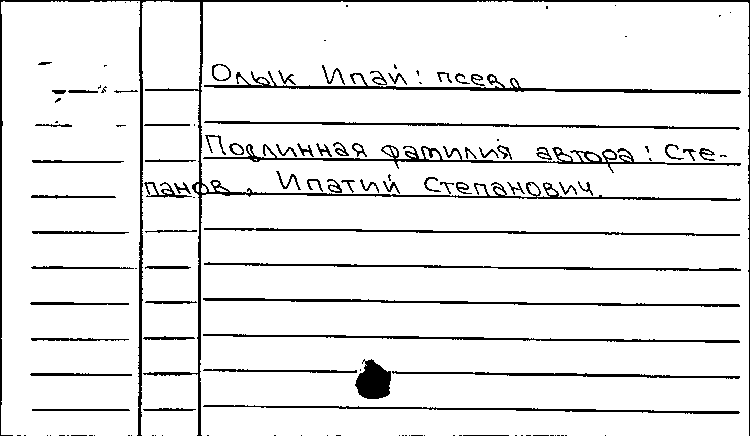 Олык Ипай: псевд
Подлинная фамилия автора: Сте-
панов, Ипатий Степанович.